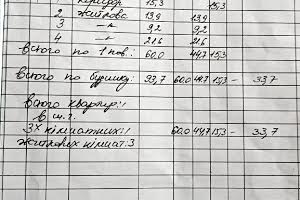 коридор 15,3 15,3
2 житлова 13,9 13,9
3 —"— 9,2 9,2
4 —"— 21.6 21.6
всього по 1 пов: 60,0 44,7 15,3
всього по будинку: 93,7 60,0 44,7 15,3 – 33,7
всього квартир: 1
в т. ч.
3х кімнатних: 1 60.0 44,7 15,3 – 33,7
житлових кімнат: 3